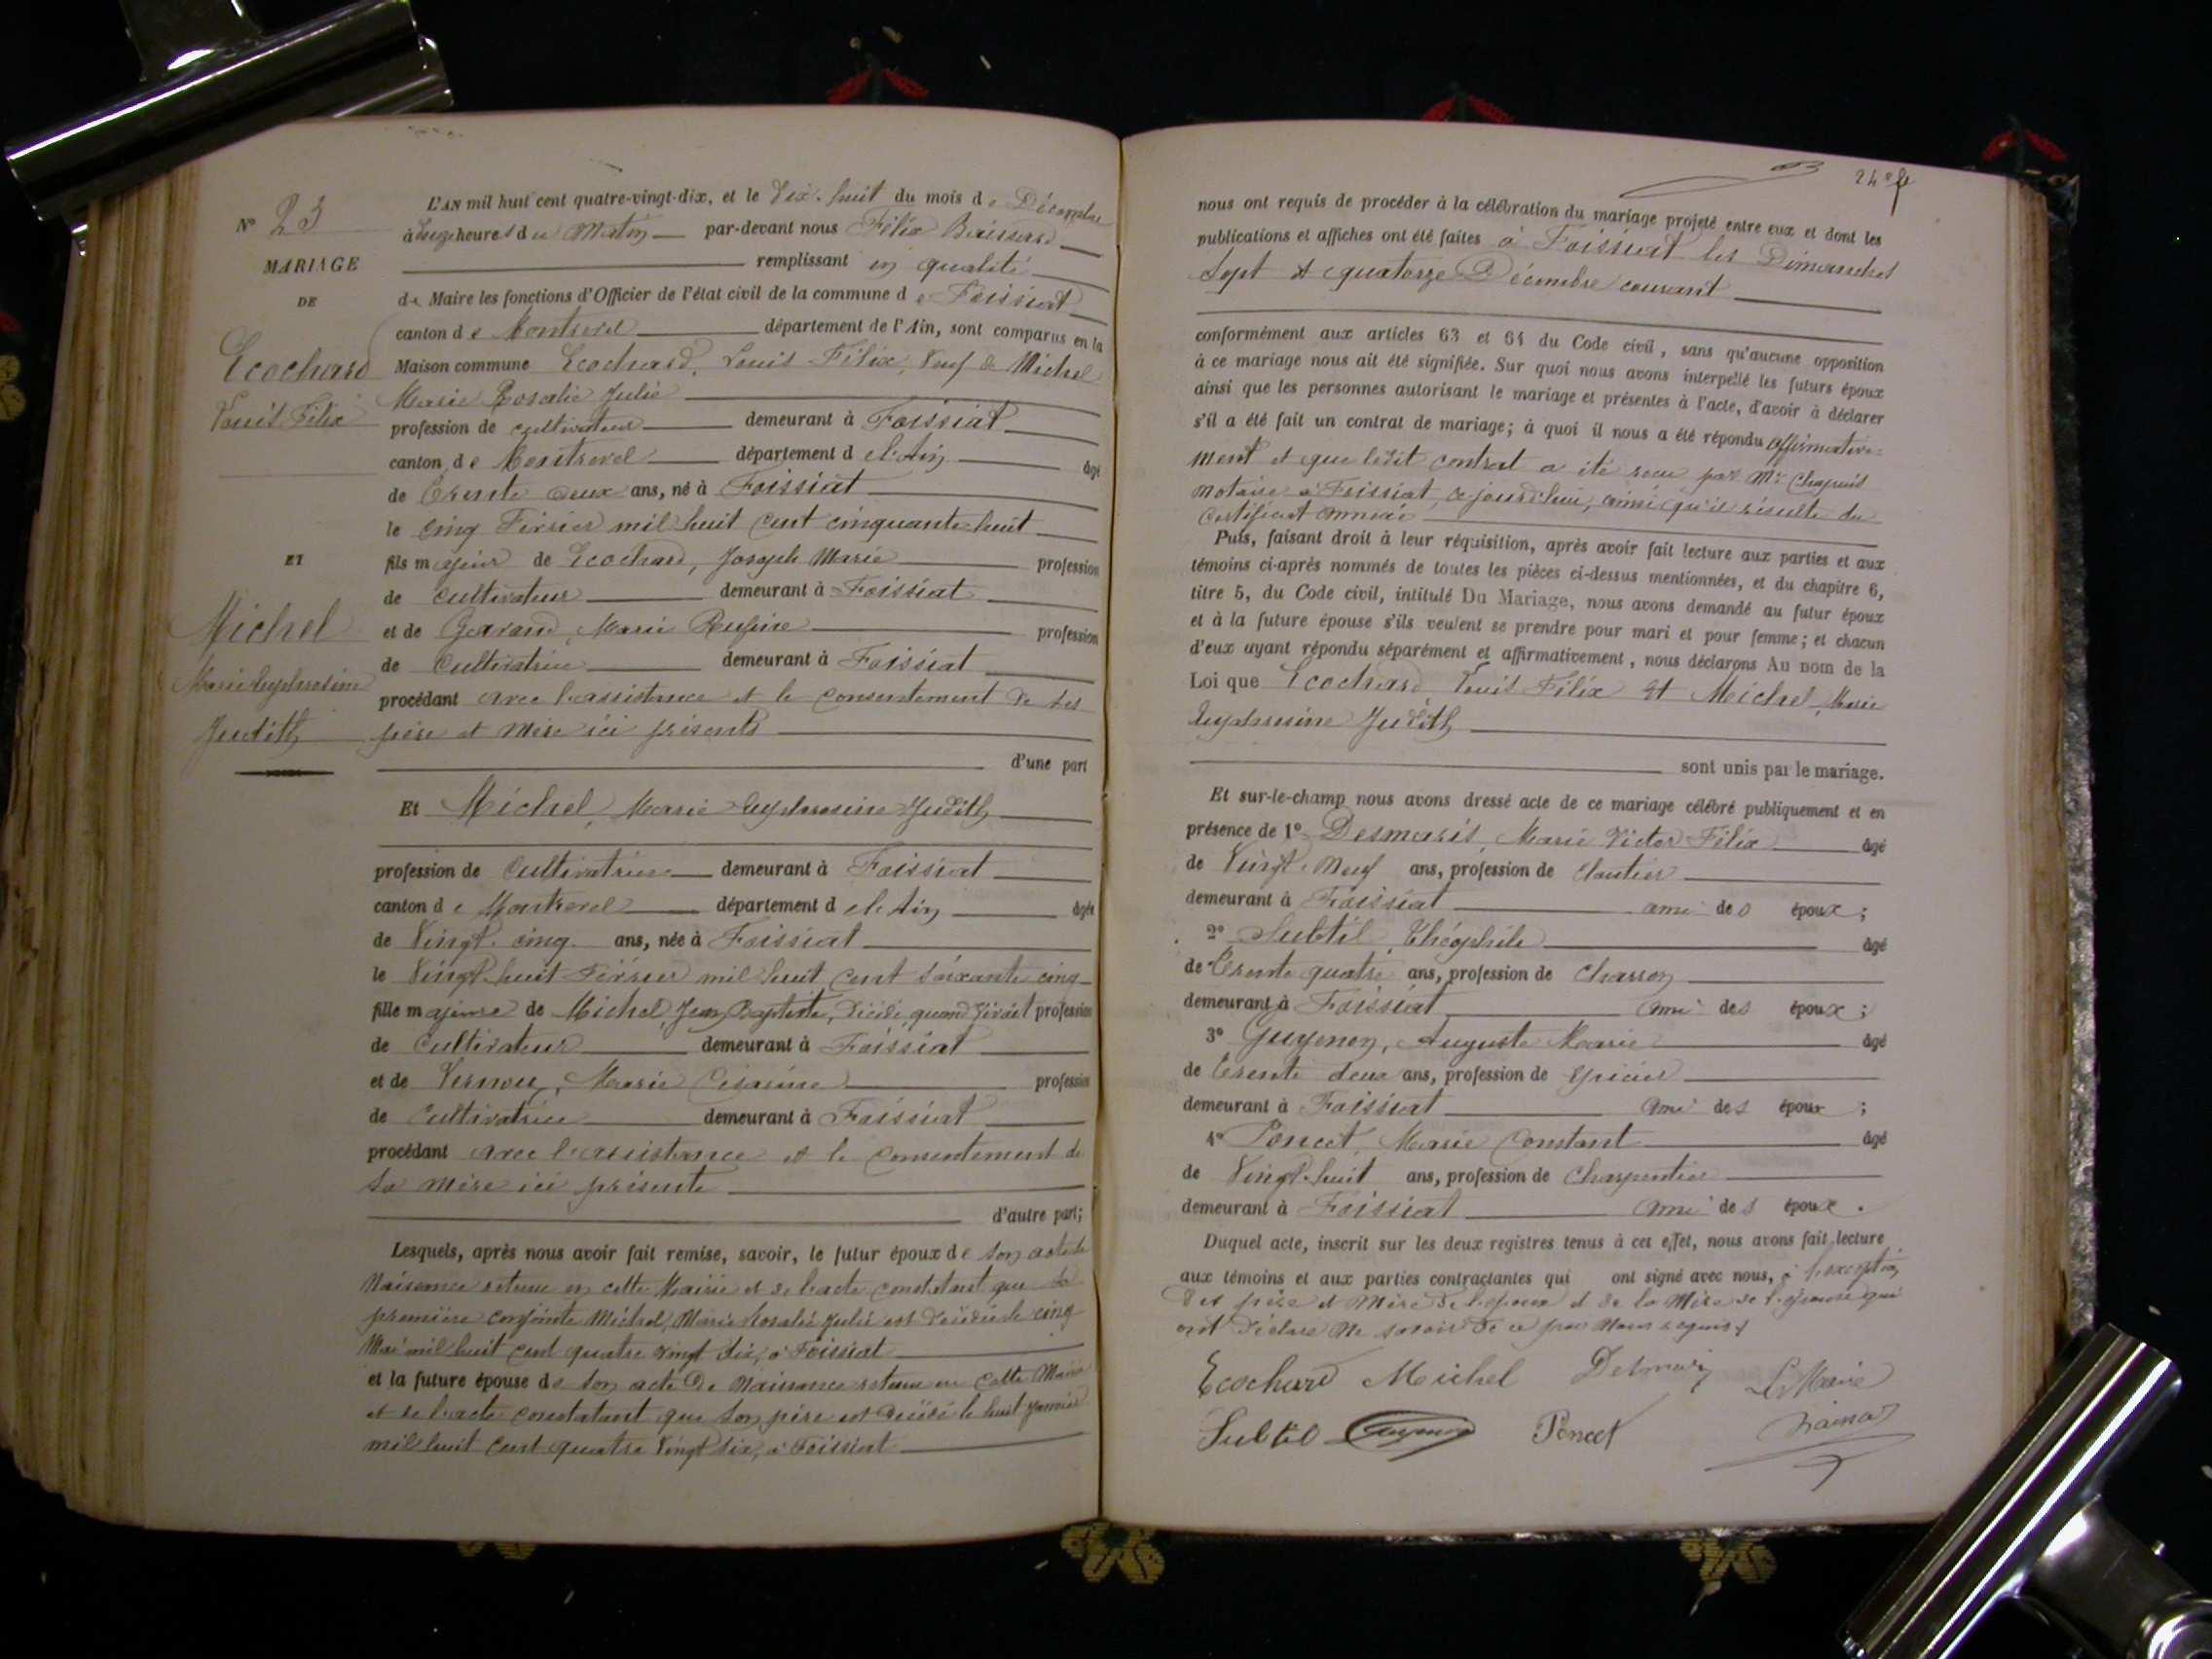 N° 23
MARIAGE
DE
Ecochard
Louis Félix
ET
Michel
Marie Euphrosine
Judith
L'AN mil huit cent quatre-vingt-dix, et le Dix-huit du mois de Décembre
à onze heures du Matin par-devant nous Félix
remplissant en qualité
de Maire les fonctions d'Officier de l'état civil de la commune de Foissiat
canton de Montrevel département de l'Ain, sont comparus en la
Maison commune Ecochard, Louis Félix, Veuf de Michel
Marie Rosalie Julie
profession de cultivateur demeurant à Foissiat
canton de Montrevel département de l'Ain âgé
de Trente deux ans, né à Foissiat
le cinq Février mil huit cent cinquante-huit
fils majeur de Ecochard, Joseph Marie profession
de cultivateur demeurant à Foissiat
et de Garand, Marie Rufine profession
de Cultivatrice demeurant à Foissiat
procédant avec l'assistance et le consentement de ses
père et mère ici présents
d'une part
Et Michel, Marie Euphrosine Judith
profession de Cultivatrice demeurant à Foissiat
canton de Montrevel département de l'Ain âgée
de Vingt-cinq ans, née à Foissiat
le Vingt-huit Février mil huit cent soixante cinq
fille majeure de Michel, Jean Baptiste, décédé, quand vivait profession
de Cultivateur demeurant à Foissiat
et de Vernoux, Marie Césarine profession
de Cultivatrice demeurant à Foissiat
procédant avec l'assistance et le consentement de
sa mère ici présente
d'autre part;
Lesquels, après nous avoir fait remise, savoir, le futur époux de son acte de
Naissance retenu en cette Mairie et de l'acte constatant que sa
première conjointe Michel, Marie Rosalie Julie est décédée le cinq
Mai mil huit cent quatre vingt dix, à Foissiat
et la future épouse de son acte de Naissance retenu en cette Mairie
et de l'acte constatant que son père est décédé le huit janvier
mil huit cent quatre vingt six, à Foissiat
24e
nous ont requis de procéder à la célébration du mariage projeté entre eux et dont les
publications et affiches ont été faites à Foissiat les Dimanches
Sept et quatorze Décembre courant
conformément aux articles 63 et 64 du Code civil, sans qu'aucune opposition
à ce mariage nous ait été signifiée. Sur quoi nous avons interpellé les futurs époux
ainsi que les personnes autorisant le mariage et présentes à l'acte, d'avoir à déclarer
s'il a été fait un contrat de mariage; à quoi il nous a été répondu affirmative-
ment et que ledit contrat a été reçu par Me Chapuis
Notaire à Foissiat, ce jourd'hui, ainsi qu'il résulte du
Certificat annexé
Puis, faisant droit à leur réquisition, après avoir fait lecture aux parties et aux
témoins ci-après nommés de toutes les pièces ci-dessus mentionnées, et du chapitre 6,
titre 5, du Code civil, intitulé Du Mariage, nous avons demandé au futur époux
et à la future épouse s'ils veulent se prendre pour mari et pour femme; et chacun
d'eux ayant répondu séparément et affirmativement, nous déclarons Au nom de la
Loi que Ecochard Louis Félix et Michel, Marie
Euphrosine Judith
sont unis par le mariage.
Et sur-le-champ nous avons dressé acte de ce mariage célébré publiquement et en
présence de 1° Desmaris, Marie Victor Félix âgé
de Vingt-neuf ans, profession de cloutier
demeurant à Foissiat ami des époux;
2° Subtil, Théophile âgé
de Trente quatre ans, profession de Charron
demeurant à Foissiat ami des époux;
3° Guyenon, Auguste Marie âgé
de Trente deux ans, profession de épicier
demeurant à Foissiat ami des époux;
4° Poncet, Marie Constant âgé
de Vingt-huit ans, profession de Charpentier
demeurant à Foissiat ami des époux.
Duquel acte, inscrit sur les deux registres tenus à cet effet, nous avons fait lecture
aux témoins et aux parties contractantes qui ont signé avec nous, à l'exception
des père et mère de l'époux et de la mère de l'épouse qui
ont déclaré ne savoir de ce par nous requis
Ecochard Michel Desmaris Le Maire
Subtil Guyenon Poncet